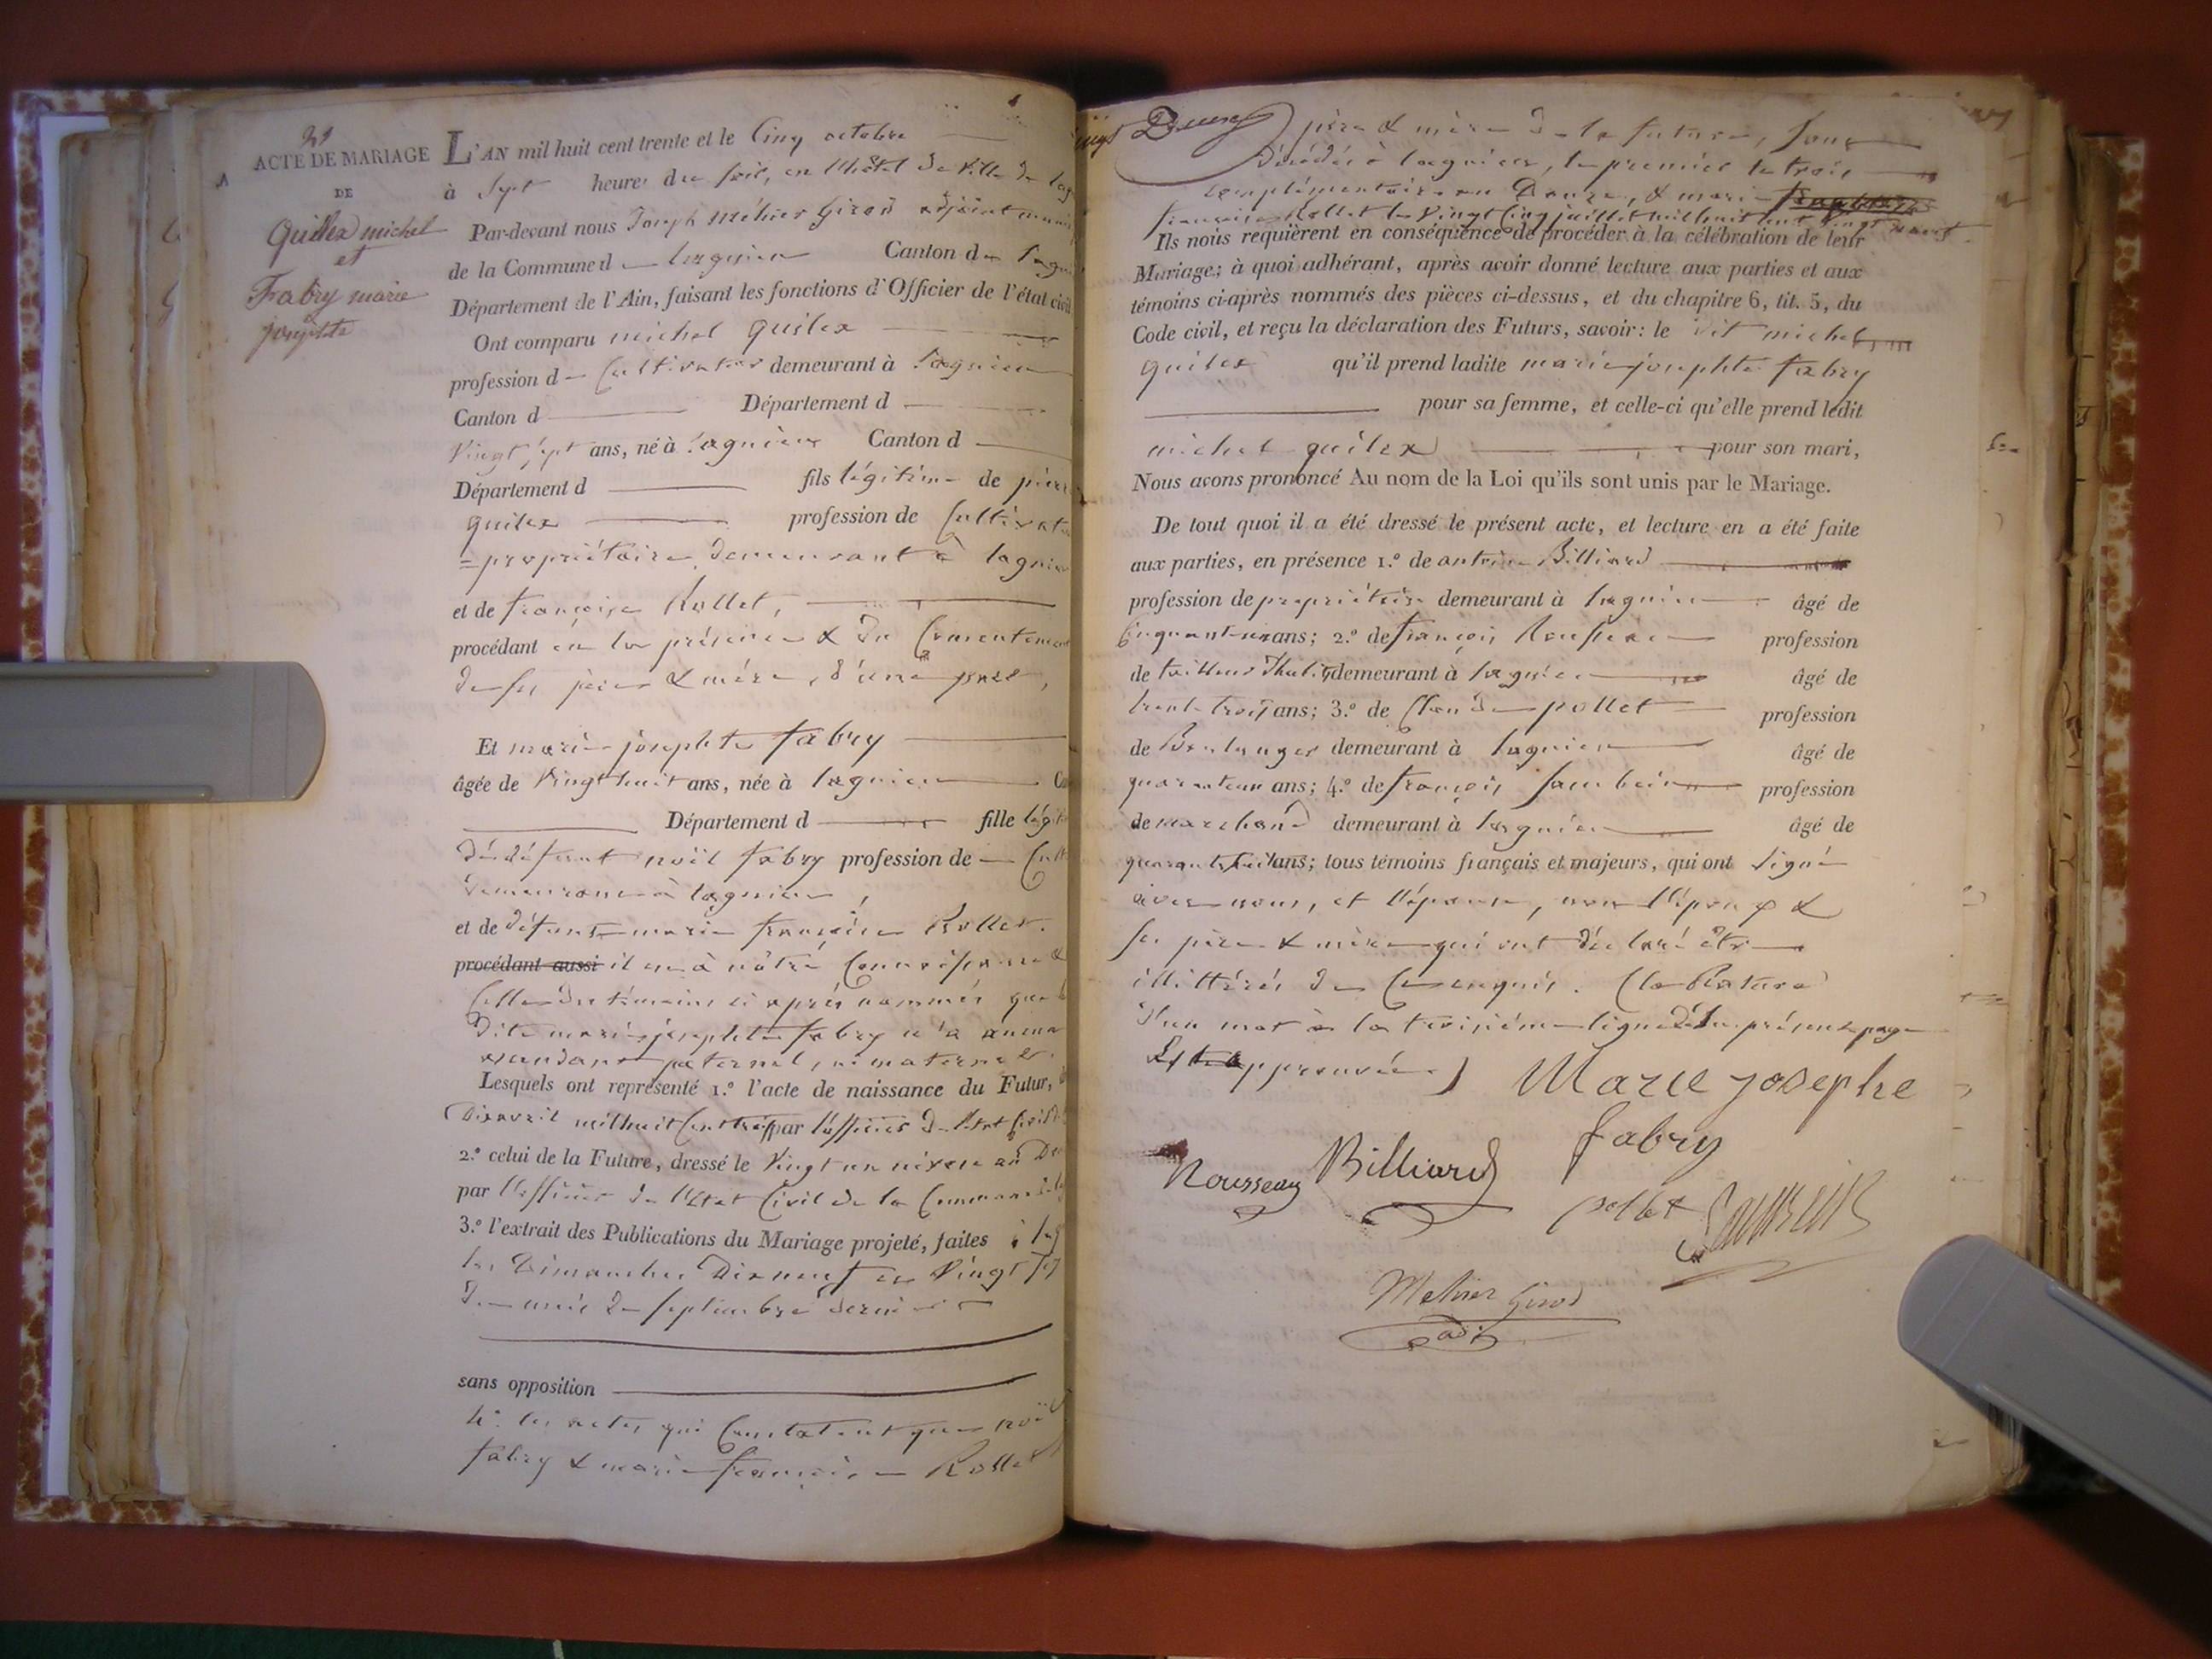 21
ACTE DE MARIAGE
DE
Quilex michel
et
Fabry marie
josephte
L'AN mil huit cent trente et le Cinq octobre
à Sept heures du soir, en l'hôtel de Ville de
Par-devant nous Joseph Mélines Girod adjoint
de la Commune d lagnieu Canton de
Département de l'Ain, faisant les fonctions d'Officier de l'état civil
Ont comparu michel quilex
profession d Cultivateur demeurant à lagnieu
Canton d Département d
Vingt sept ans, né à lagnieu Canton d
Département d fils légitime de pierre
quilex profession de
propriétaire demeurant à lagnieu
et de françoise Rollet,
procédant en la présence & du Consentement
de ses père & mère, d'une part,
Et marie josephte fabry
âgée de Vingt huit ans, née à lagnieu
Département d fille
de défunt noël fabry profession de
demeurant à lagnieu,
et de défunte marie françoise Rollet.
procédant aussi il est à nôtre Connoissance &
Celle des témoins ci après nommés que la
dite marie josephte fabry n'a aucun
ascendant paternel, ni maternel.
Lesquels ont représenté 1.º l'acte de naissance du Futur,
Dix avril mil huit Cent trois par l'officier de l'état Civil
2.º celui de la Future, dressé le Vingt un nivose an
par l'officier de l'Etat Civil de la Commune de
3.º l'extrait des Publications du Mariage projeté, faites à
les Dimanches Dix neuf et Vingt
du mois de septembre dernier
sans opposition
4.º les actes qui Constatent que noël
fabry & marie françoise Rollet
père & mère de la future, sont
décédés à lagnieu, le premier le trois
complémentaire an Douze, & marie
françoise Rollet le Vingt Cinq juillet mil huit cent Vingt neuf.
Ils nous requièrent en conséquence de procéder à la célébration de leur
Mariage; à quoi adhérant, après avoir donné lecture aux parties et aux
témoins ci-après nommés des pièces ci-dessus, et du chapitre 6, tit. 5, du
Code civil, et reçu la déclaration des Futurs, savoir: le dit michel
quilex qu'il prend ladite marie josephte fabry
pour sa femme, et celle-ci qu'elle prend ledit
michel quilex pour son mari,
Nous avons prononcé Au nom de la Loi qu'ils sont unis par le Mariage.
De tout quoi il a été dressé le présent acte, et lecture en a été faite
aux parties, en présence 1.º de antoine Billiard
profession de propriétaire demeurant à lagnieu âgé de
ans; 2.º de françois Rousseau profession
de tailleur d'habits demeurant à lagnieu âgé de
trente trois ans; 3.º de Claude pollet profession
de Boulanger demeurant à lagnieu âgé de
quarante un ans; 4.º de françois profession
de marchand demeurant à lagnieu âgé de
quarante huit ans; tous témoins français et majeurs, qui ont signé
avec nous, et l'épouse, non l'époux &
ses père & mère qui ont déclaré être
illittérés de Ce enquis. (la Rature
d'un mot à la troisième ligne de la présente page
Est approuvée)
Marie josephe
fabry
Rousseau Billiard
pollet
Melines Girod
adj